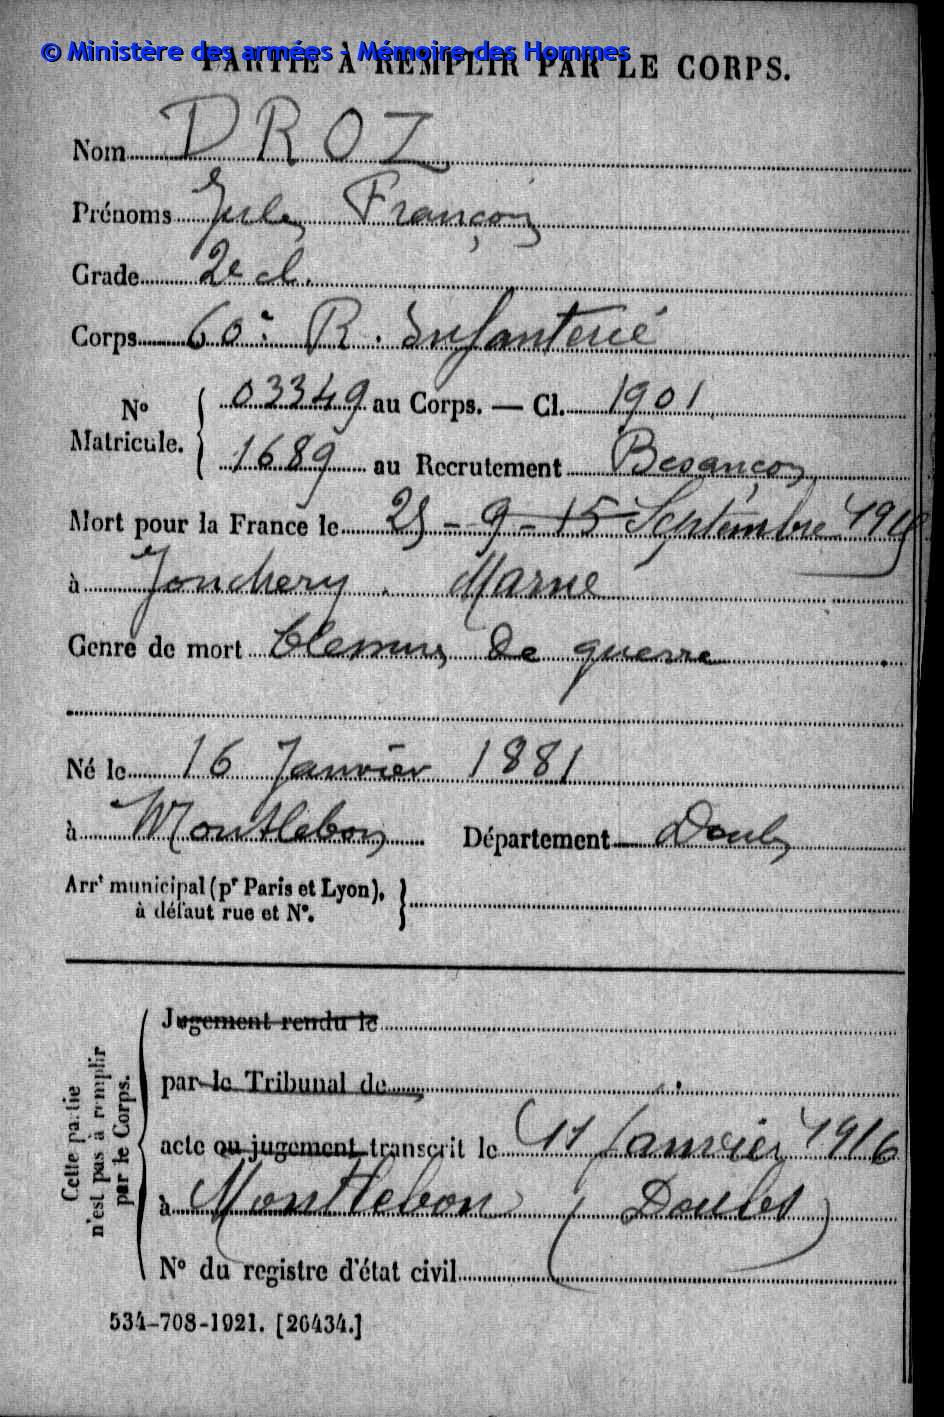 © Ministère des armées - Mémoire des Hommes
PARTIE À REMPLIR PAR LE CORPS.
Nom DROZ
Prénoms Jules François
Grade 2e cl.
Corps 60e R. Infanterie
No Matricule. 03349 au Corps. — Cl. 1901
1689 au Recrutement Besançon
Mort pour la France le 25 - 9 - 15 Septembre 1915
à Jonchery. Marne
Genre de mort blessures de guerre
Né le 16 Janvier 1881
à Montlebon Département Doubs
Arrt municipal (pr Paris et Lyon),
à défaut rue et No.
Cette partie n'est pas à remplir par le Corps.
Jugement rendu le
par le Tribunal de
acte ou jugement transcrit le 11 Janvier 1916
à Montlebon (Doubs)
No du registre d'état civil
534-708-1921. [26434.]